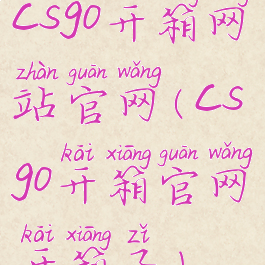 csgo开箱网
zhàn guān wǎng
站官网(cs
kāi xiāng guān wǎng
go开箱官网
kāi xiāng zǐ
开箱子)